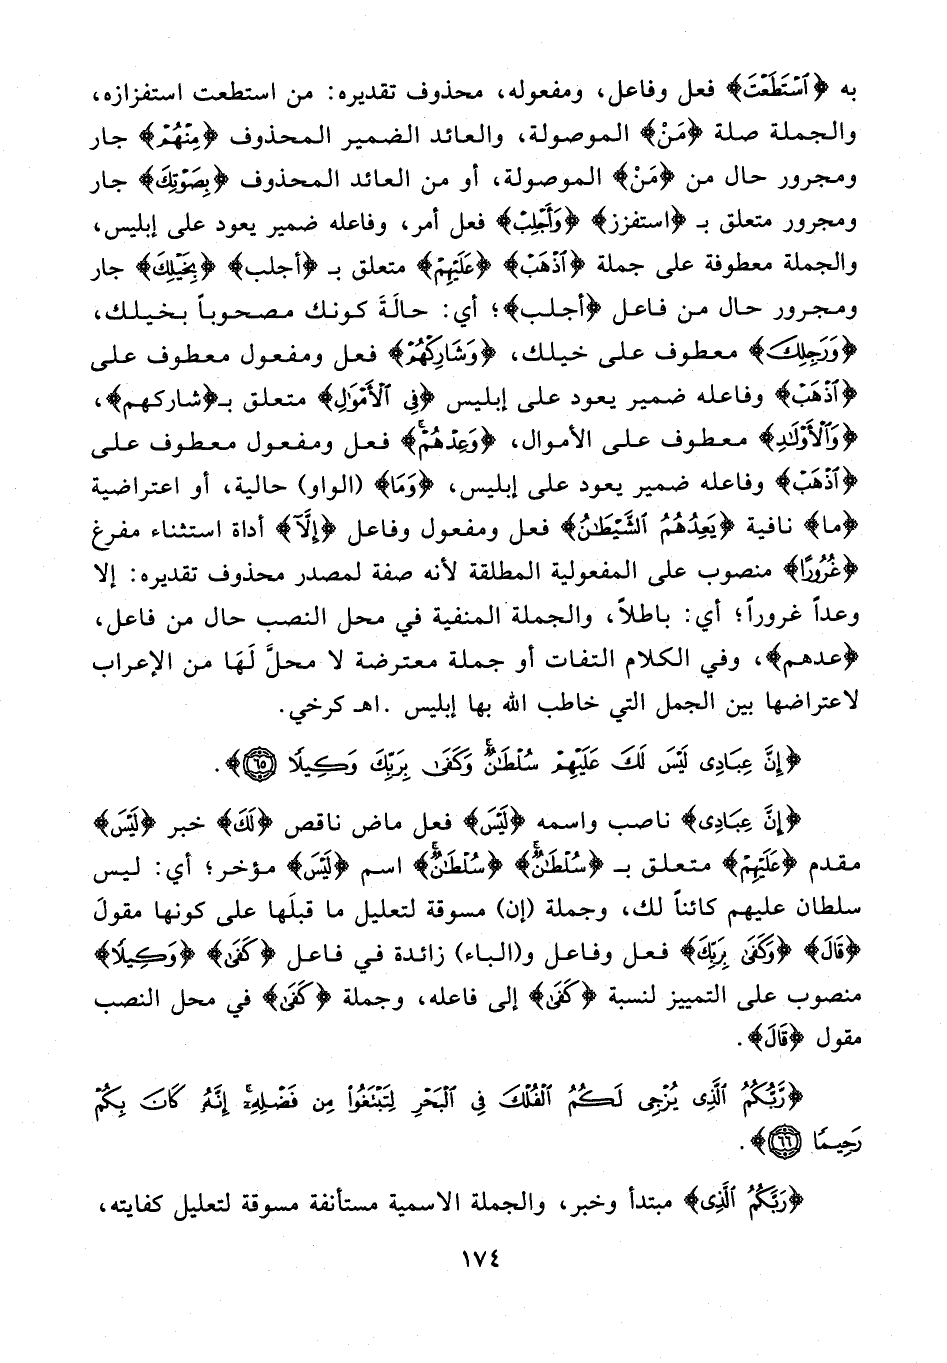 به ﴿ٱسْتَطَعْتَ﴾ فعل وفاعل، ومفعوله، محذوف تقديره: من استطعت استفزازه،
والجملة صلة ﴿مَنْ﴾ الموصولة، والعائد الضمير المحذوف ﴿مِنْهُمْ﴾ جار
ومجرور حال من ﴿مَنْ﴾ الموصولة، أو من العائد المحذوف ﴿بِصَوْتِكَ﴾ جار
ومجرور متعلق بـ ﴿استفزز﴾ ﴿وَأَجْلِبْ﴾ فعل أمر، وفاعله ضمير يعود على إبليس،
والجملة معطوفة على جملة ﴿ٱذْهَبْ﴾ ﴿عَلَيْهِمْ﴾ متعلق بـ ﴿أجلب﴾ ﴿بِخَيْلِكَ﴾ جار
ومجرور حال من فاعل ﴿أجلب﴾؛ أي: حالَةَ كونك مصحوباً بخيلك،
﴿وَرَجِلِكَ﴾ معطوف على خيلك، ﴿وَشَارِكْهُمْ﴾ فعل ومفعول معطوف على
﴿ٱذْهَبْ﴾ وفاعله ضمير يعود على إبليس ﴿فِي ٱلْأَمْوَٰلِ﴾ متعلق بـ﴿شاركهم﴾،
﴿وَٱلْأَوْلَٰدِ﴾ معطوف على الأموال، ﴿وَعِدْهُمْ﴾ فعل ومفعول معطوف على
﴿ٱذْهَبْ﴾ وفاعله ضمير يعود على إبليس، ﴿وَمَا﴾ (الواو) حالية، أو اعتراضية
﴿ما﴾ نافية ﴿يَعِدُهُمُ ٱلشَّيْطَٰنُ﴾ فعل ومفعول وفاعل ﴿إِلَّآ﴾ أداة استثناء مفرغ
﴿غُرُورًا﴾ منصوب على المفعولية المطلقة لأنه صفة لمصدر محذوف تقديره: إلا
وعداً غروراً؛ أي: باطلاً، والجملة المنفية في محل النصب حال من فاعل،
﴿عدهم﴾، وفي الكلام التفات أو جملة معترضة لا محلَّ لَهَا من الإعراب
لاعتراضها بين الجمل التي خاطب الله بها إبليس .اهـ كرخي.
﴿إِنَّ عِبَادِى لَيْسَ لَكَ عَلَيْهِمْ سُلْطَٰنٌ ۚ وَكَفَىٰ بِرَبِّكَ وَكِيلًا ٦٥﴾.
﴿إِنَّ عِبَادِى﴾ ناصب واسمه ﴿لَيْسَ﴾ فعل ماض ناقص ﴿لَكَ﴾ خبر ﴿لَيْسَ﴾
مقدم ﴿عَلَيْهِمْ﴾ متعلق بـ ﴿سُلْطَٰنٌ ۚ﴾ ﴿سُلْطَٰنٌ ۚ﴾ اسم ﴿لَيْسَ﴾ مؤخر؛ أي: ليس
سلطان عليهم كائناً لك، وجملة (إن) مسوقة لتعليل ما قبلَها على كونها مقولَ
﴿قَالَ﴾ ﴿وَكَفَىٰ بِرَبِّكَ﴾ فعل وفاعل و(الباء) زائدة في فاعل ﴿كَفَىٰ﴾ ﴿وَكِيلًا﴾
منصوب على التمييز لنسبة ﴿كَفَىٰ﴾ إلى فاعله، وجملة ﴿كَفَىٰ﴾ في محل النصب
مقول ﴿قَالَ﴾.
﴿رَّبُّكُمُ ٱلَّذِى يُزْجِى لَكُمُ ٱلْفُلْكَ فِى ٱلْبَحْرِ لِتَبْتَغُوا۟ مِن فَضْلِهِۦٓ ۚ إِنَّهُۥ كَانَ بِكُمْ
رَحِيمًا ٦٦﴾.
﴿رَبُّكُمُ الَّذِى﴾ مبتدأ وخبر، والجملة الاسمية مستأنفة مسوقة لتعليل كفايته،
١٧٤